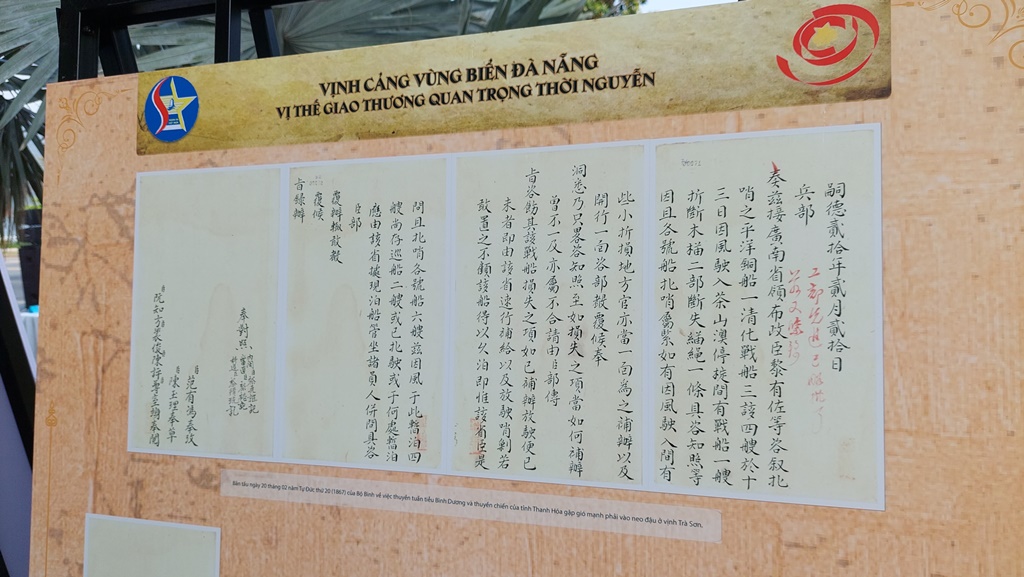 VỊNH CẢNG VÙNG BIỂN ĐÀ NẴNG
VỊ THẾ GIAO THƯƠNG QUAN TRỌNG THỜI NGUYỄN
嗣德貳拾年貳月貳拾日
兵部
奏茲接廣南省領布政臣黎有佐等咨叙北
哨之平洋銅船一清化戰船三該四艘於十
三日因風駛入茶山澳停碇間有戰船一艘
折斷木椗二部斷失緢繩一條具咨知照等
因且各號船北哨屬緊如有因風駛入間有
些小折損地方官亦當一面為之補辦以及
開行一面咨部覈覆候奉
洞悉乃只畧咨知照至如損失之項當如何補辦
曾不一及亦屬不合請由臣部傳
旨咨飭其該戰船損失之項如已補辦放駛便已
未者即由該省速行補給以及放駛哨剿若
敢置之不顧該船得以久泊即惟該省臣是
問且北哨各號船六艘茲因風于此暫泊四
艘尚存巡船二艘或已北駛或于何處暫泊
應由該省據現泊船管坐諸員人併問具咨
臣部
覆辦輒敢敷
覆候
旨錄辦
奉對照
臣范有鴻奉攷
臣陳玉理奉草
Bản tấu ngày 20 tháng 02 năm Tự Đức thứ 20 (1867) của Bộ Binh về việc thuyền tuần tiễu Bình Dương và thuyền chiến của tỉnh Thanh Hóa gặp gió mạnh phải vào neo đậu ở vịnh Trà Sơn.